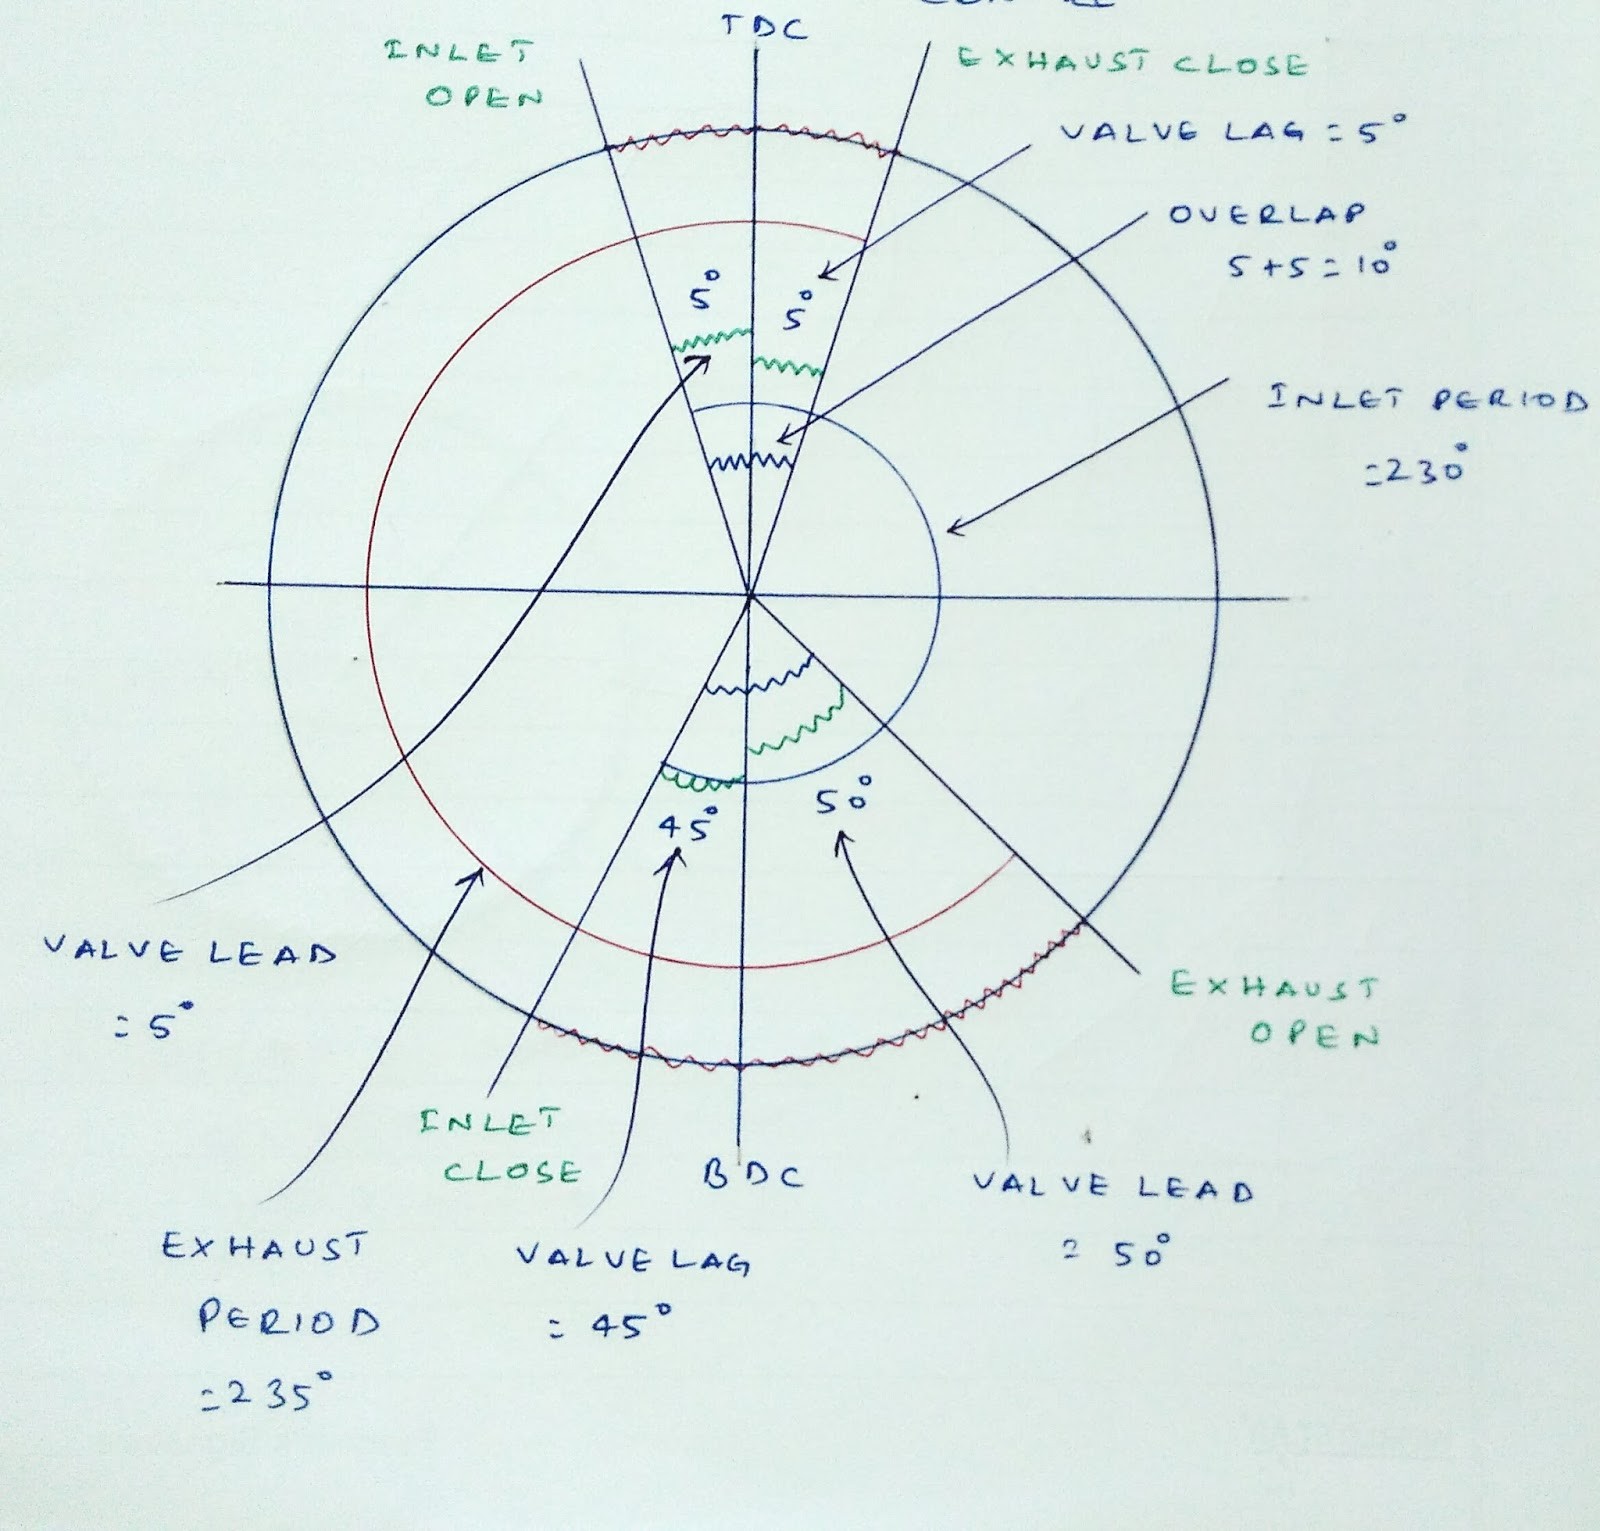 TDC
INLET
OPEN
EXHAUST CLOSE
VALVE LAG = 5°
OVERLAP
5+5=10°
5°
5°
INLET PERIOD
=230°
45°
50°
VALVE LEAD
= 5°
EXHAUST
OPEN
INLET
CLOSE
BDC
VALVE LEAD
= 50°
EXHAUST
PERIOD
=235°
VALVE LAG
= 45°